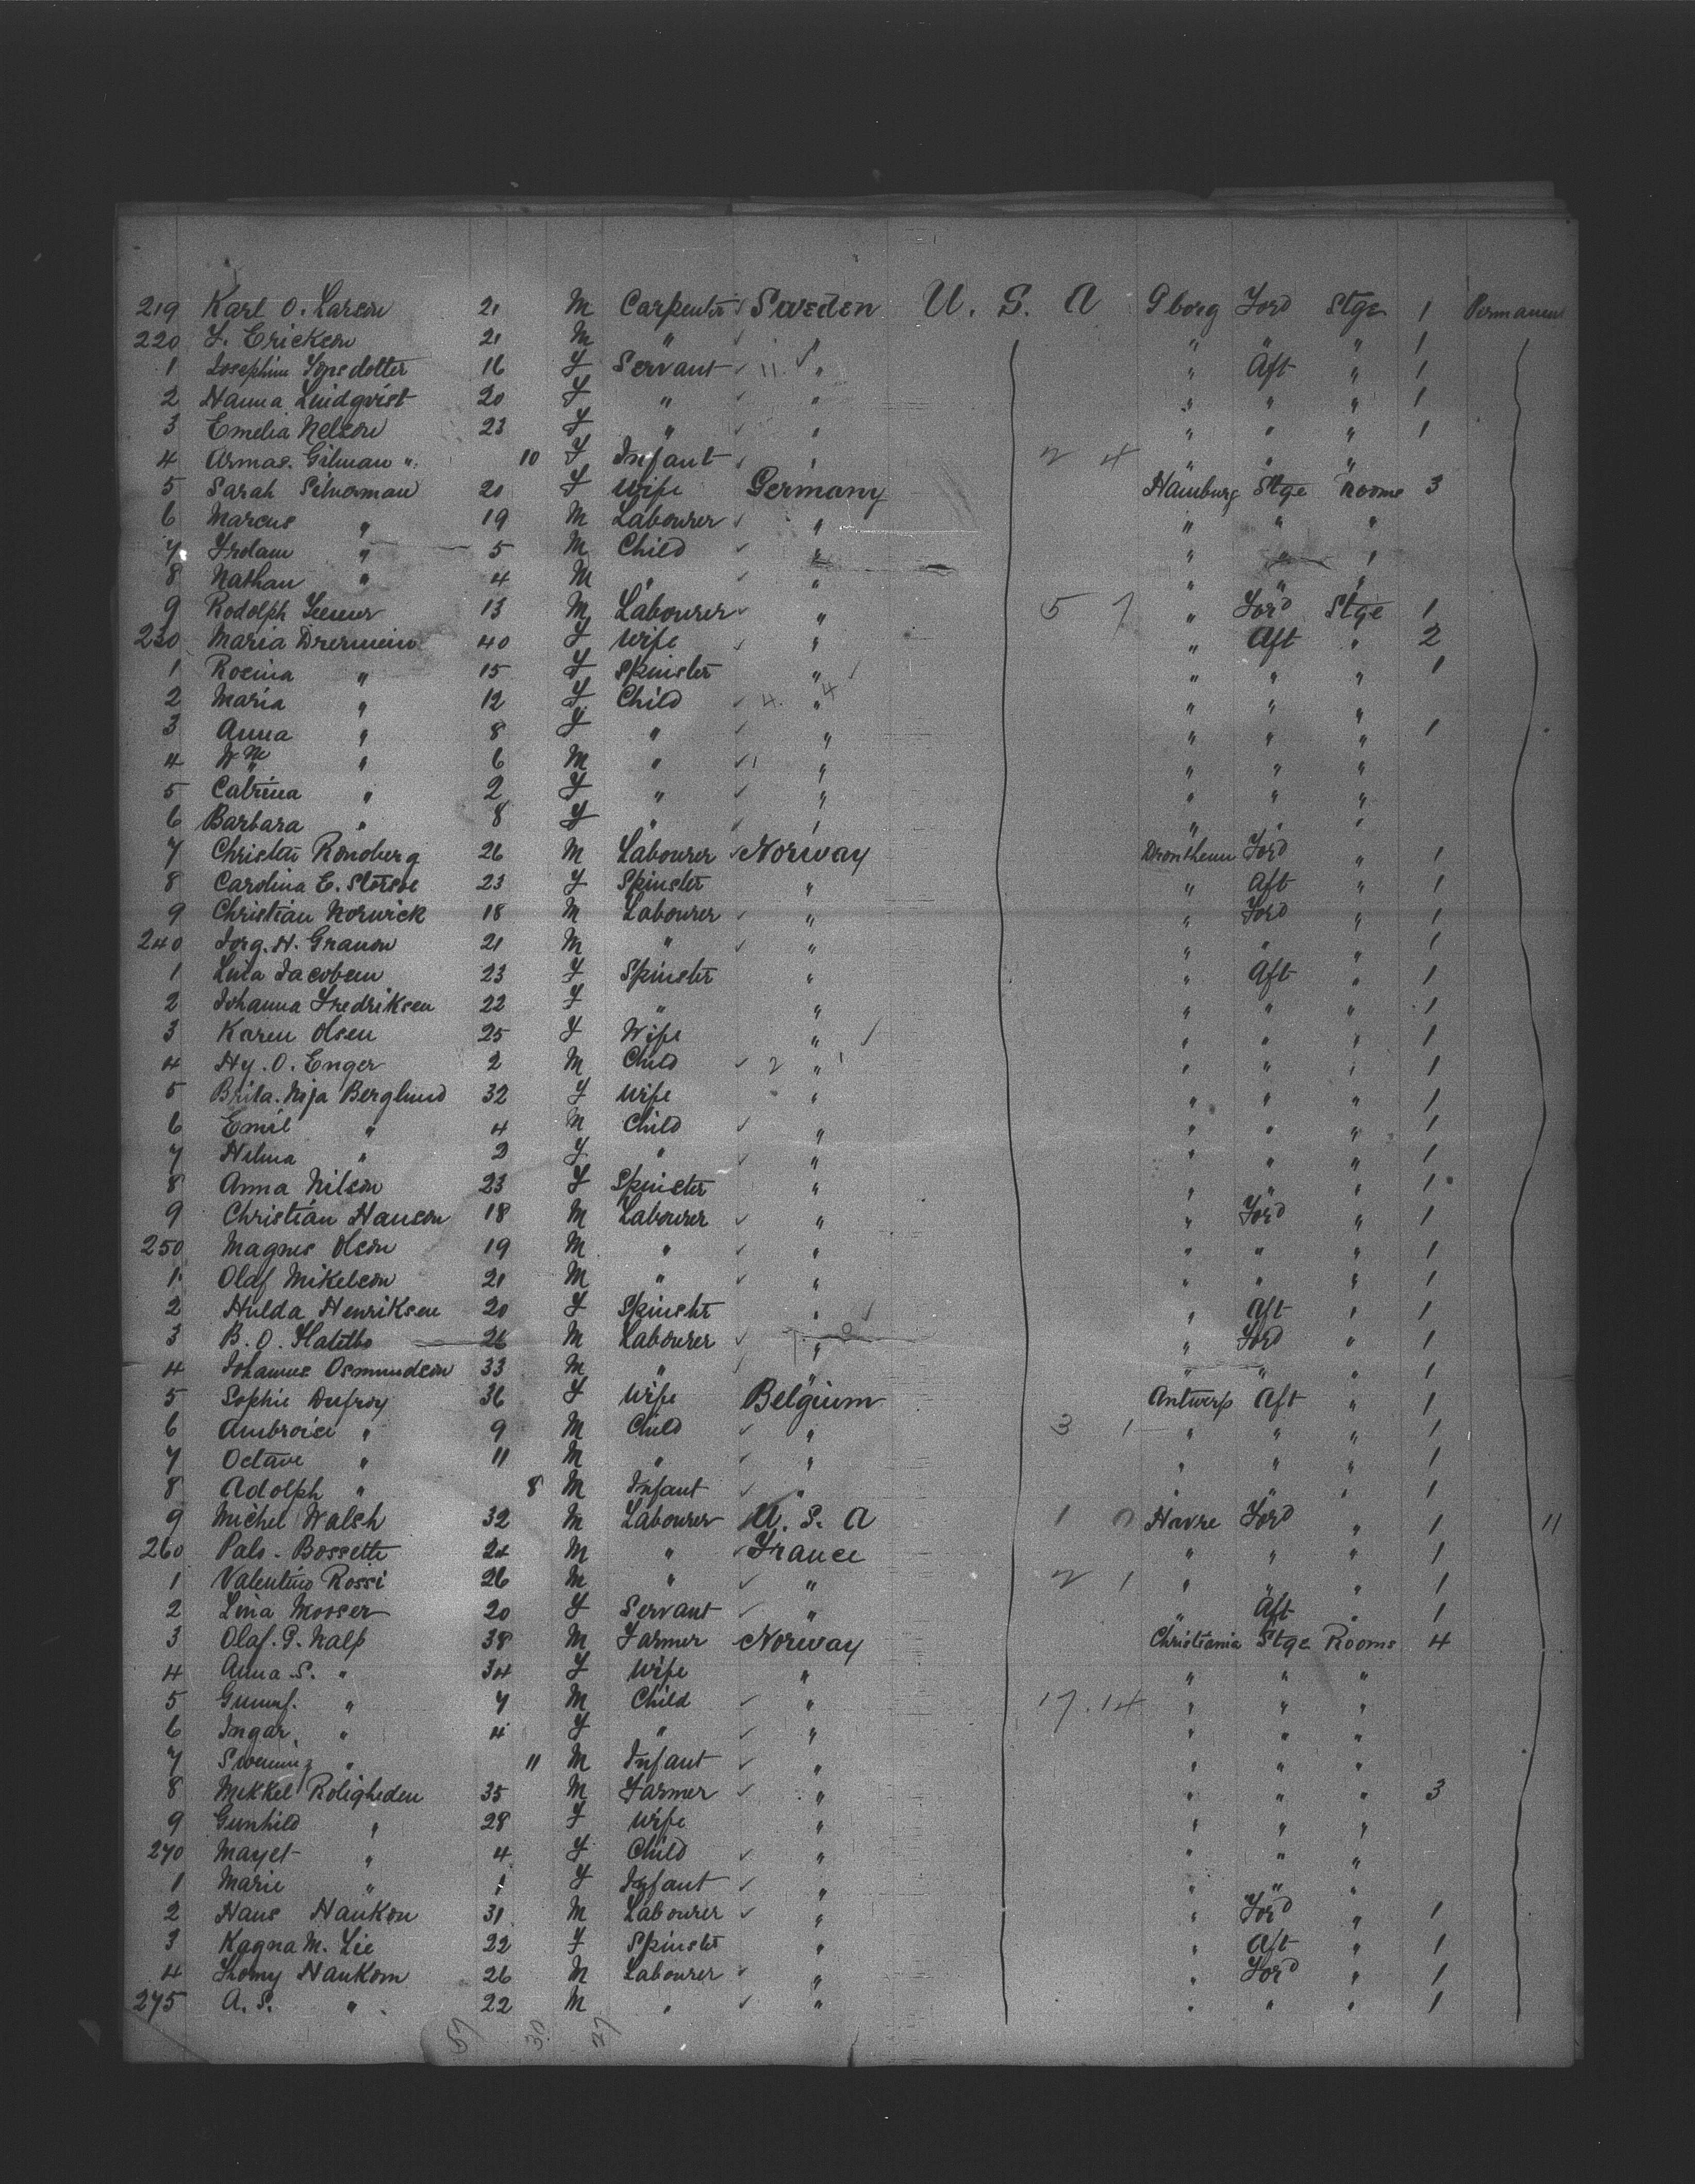 219 Karl O. Larson 21 M Carpenter Sweden U. S. A Gborg Ford Stge 1 Permanent
220 F. Erickson 21 M " " " " " 1
1 Josephine Jonsdotter 16 F Servant 11 " " Aft " 1
2 Hanna Lindqvist 20 F " " " " " 1
3 Emelia Nelson 23 F " " " " " 1
4 Armas. Gilman " 10 F Infant " 2 4 " " "
5 Sarah Silverman 20 F Wife Germany Hamburg Stge Rooms 3
6 Marcus " 19 M Labourer " " " "
7 " 5 M Child " " " "
8 Nathan " 4 M " " " " "
9 Rodolph 13 M Labourer " 5 7 " Ford Stge 1
230 Maria 40 F Wife " " Aft " 2
1 Rosina " 15 F Spinster " " " " 1
2 Maria " 12 F Child 4. 4 " " " "
3 Anna " 8 F " " " " " 1
4 Wm " 6 M " 1 " " " "
5 Catrina " 2 F " " " " "
6 Barbara " 8 F " " " " "
7 Christen Ronoberg 26 M Labourer Norway Drontheim Ford " 1
8 Carolina E. 23 F Spinster " " Aft " 1
9 Christian Norwick 18 M Labourer " " Ford " 1
240 Jorg. H. Granon 21 M " " " " " 1
1 Lina Jacobsen 23 F Spinster " " Aft " 1
2 Johanna Fredriksen 22 F " " " " " 1
3 Karen Olsen 25 F Wife " " " " 1
4 Hy. O. Enger 2 M Child 2 " 1 " " " 1
5 Brita. Berglund 32 F Wife " " " " 1
6 Emil " 4 M Child " " " " 1
7 Hilma " 2 F " " " " " 1
8 Anna Nilson 23 F Spinster " " " " 1
9 Christian Hanson 18 M Labourer " " Ford " 1
250 Magnus Olson 19 M " " " " " 1
1 Olaf Mikelson 21 M " " " " " 1
2 Hulda Henriksen 20 F Spinster " " Aft " 1
3 B. O. 26 M Labourer " " Ford " 1
4 Johannes Osmundson 33 M " " " " " 1
5 Sophie Dufroy 36 F Wife Belgium Antwerp Aft " 1
6 Ambroise " 9 M Child " 3 1 " " " 1
7 Octave " 11 M " " " " " 1
8 Adolph " 8 M Infant " " " " 1
9 Michel Walsh 32 M Labourer U. S. A 1 0 Havre Ford " 1 11
260 Palo. Bossette 24 M " France " " " 1
1 Valentino Rossi 26 M " " 2 1 " " " 1
2 Lina Mooser 20 F Servant " " Aft " 1
3 Olaf. G. Nalp 38 M Farmer Norway Christiania Stge Rooms 4
4 Anna S. " 34 F Wife " " " "
5 " 7 M Child " 17. 14 " " "
6 Ingar " 4 F " " " " "
7 " 11 M Infant " " " "
8 Mekkel Roligheden 35 M Farmer " " " " 3
9 Gunhild " 28 F Wife " " " "
270 Mayet " 4 F Child " " " "
1 Marie " 1 F Infant " " " "
2 Hans Haukon 31 M Labourer " " Ford " 1
3 Ragna M. Lie 22 F Spinster " " Aft " 1
4 Haukom 26 M Labourer " " Ford " 1
275 A. S. " 22 M " " " " " 1